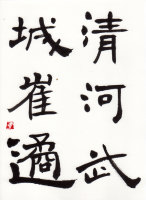 清河武
城崔遹